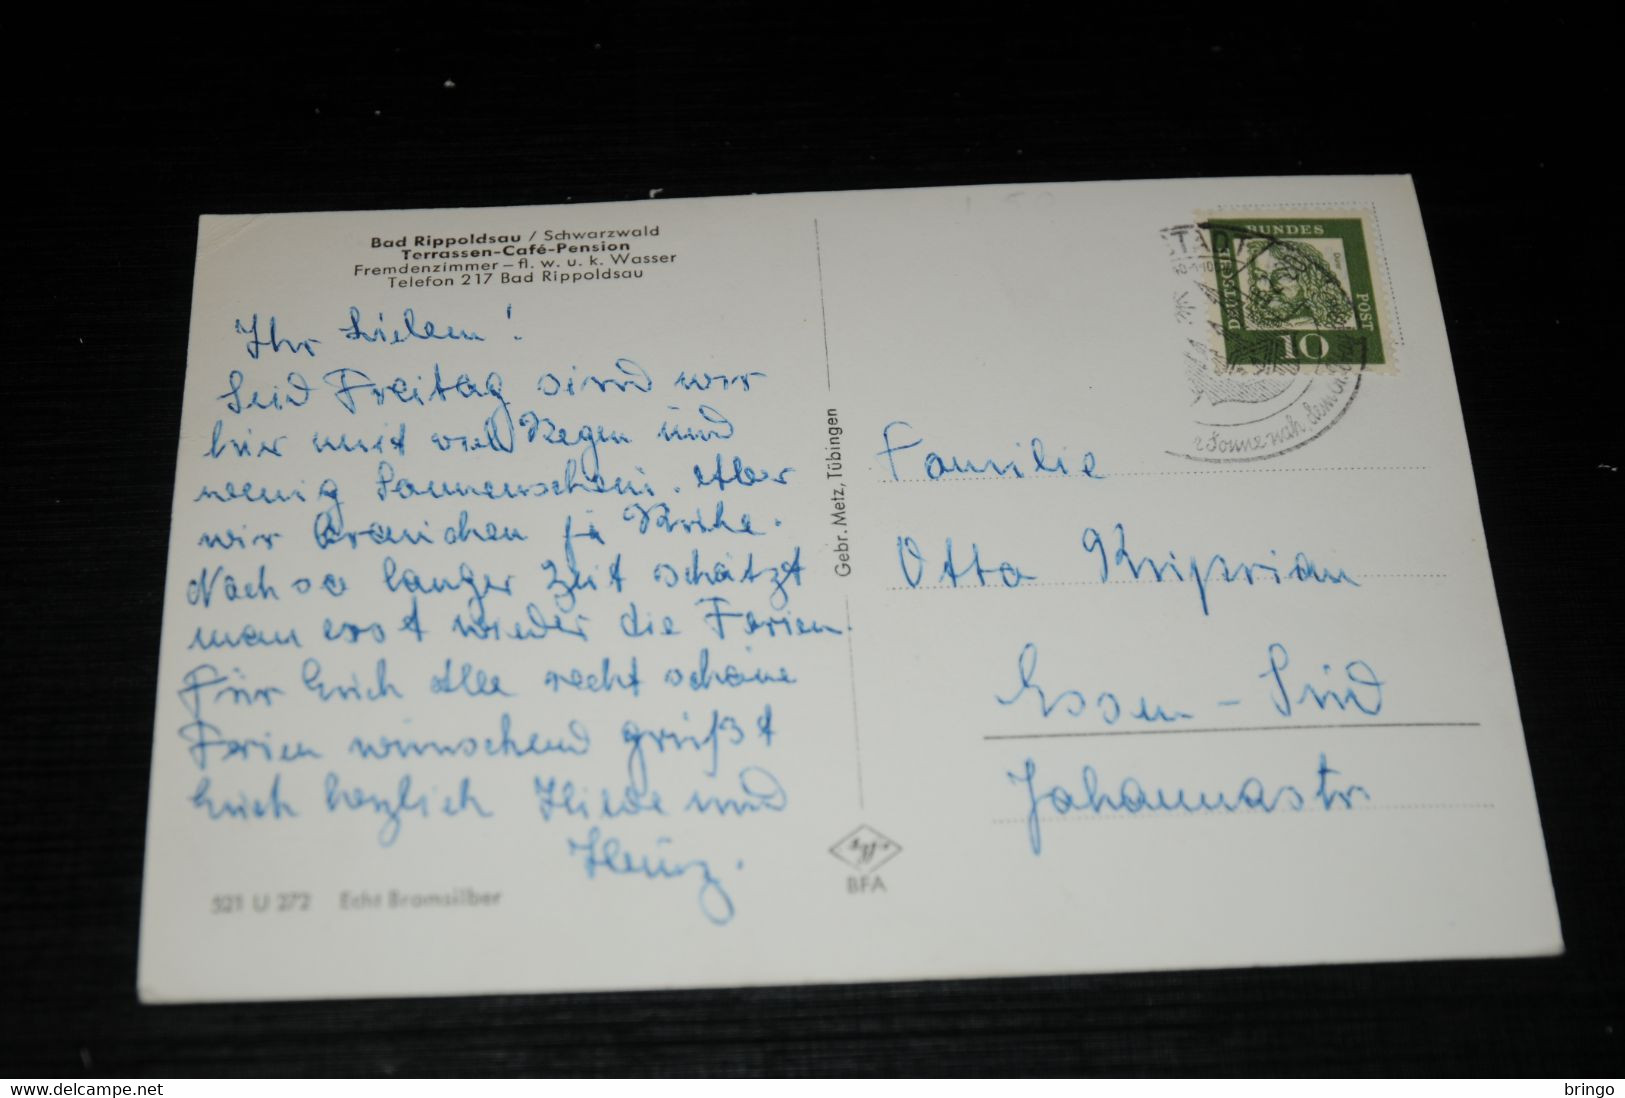 Bad Rippoldsau / Schwarzwald
Terrassen-Café-Pension
Fremdenzimmer – fl. w. u. k. Wasser
Telefon 217 Bad Rippoldsau
Ihr Lieben!
Seid Freitag sind wir
hier mit viel Regen und
wenig Sonnenschein. Aber
wir brauchen ja Ruhe.
Nach so langer Zeit schätzt
man erst wieder die Ferien.
Für Euch Alle recht schöne
Ferien wünschend grüßt
Euch herzlich Hilde und
Heinz.
521 U 272 Echt Bromsilber
Gebr. Metz, Tübingen
BFA
DEUTSCHE
BUNDES
POST
Dürer
10
Sonne nah, dem
Familie
Otto Kriprian
Essen - Süd
Johannastr.
www.delcampe.net
bringo